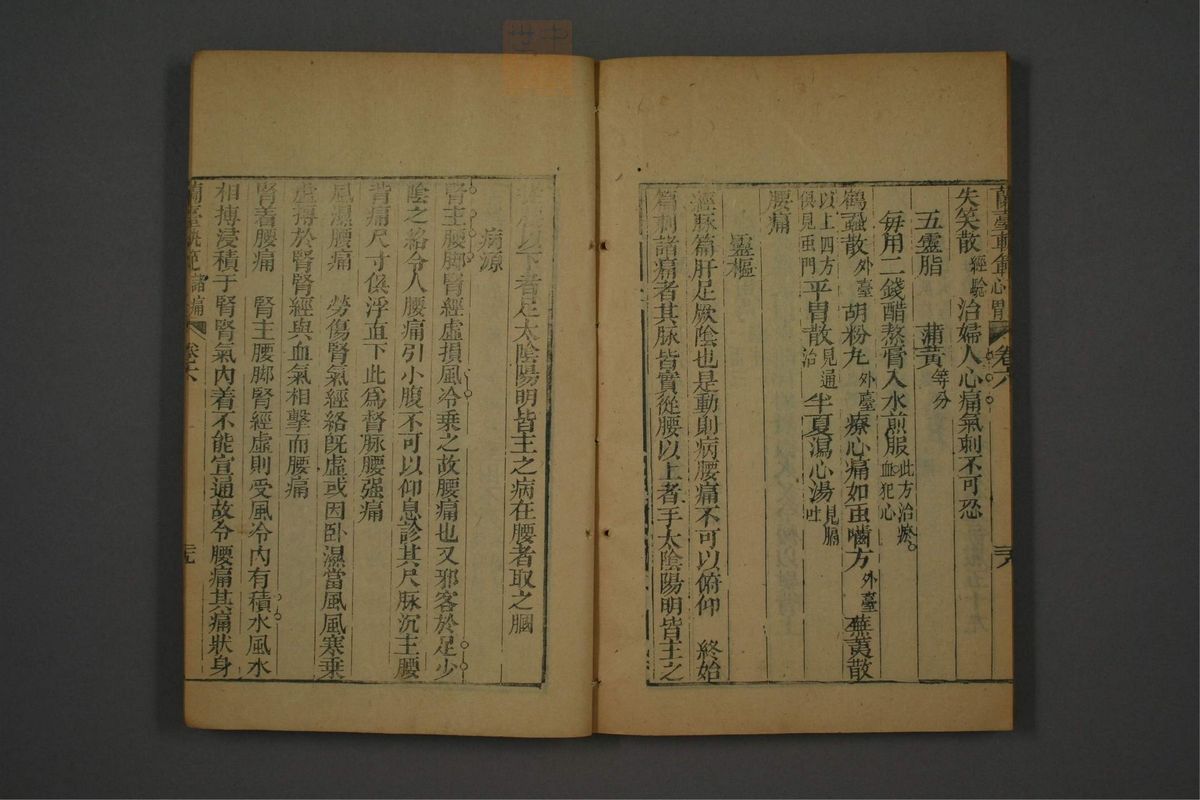 蘭臺軌範心胃 卷六
失笑散經驗治婦人心痛氣刺不可忍
五靈脂 蒲黃等分
每用二錢醋熬膏入水煎服此方治瘀血犯心
鶴蝨散外臺 胡粉丸外臺 療心痛如蟲嚙方外臺 蕪荑散
以上四方俱見虫門平胃散見通治半夏瀉心湯見膈吐
腰痛
靈樞
經脉篇肝足厥陰也是動則病腰痛不可以俯仰 終始
篇刺諸痛者其脉皆實從腰以上者手太陰陽明皆主之
以下者足太陰陽明皆主之病在腰者取之膕
病源
腎主腰脚腎經虛損風冷乘之故腰痛也又邪客於足少
陰之絡令人腰痛引小腹不可以仰息診其尺脉沉主腰
背痛尺寸俱浮直下此爲督脉腰强痛
風濕腰痛 勞傷腎氣經絡既虛或因卧濕當風風寒乘
虛搏於腎腎經與血氣相擊而腰痛
腎着腰痛 腎主腰脚腎經虛則受風冷內有積水風水
相搏浸積于腎腎氣內着不能宣通故令腰痛其痛狀身
蘭臺軌範諸痛 卷六